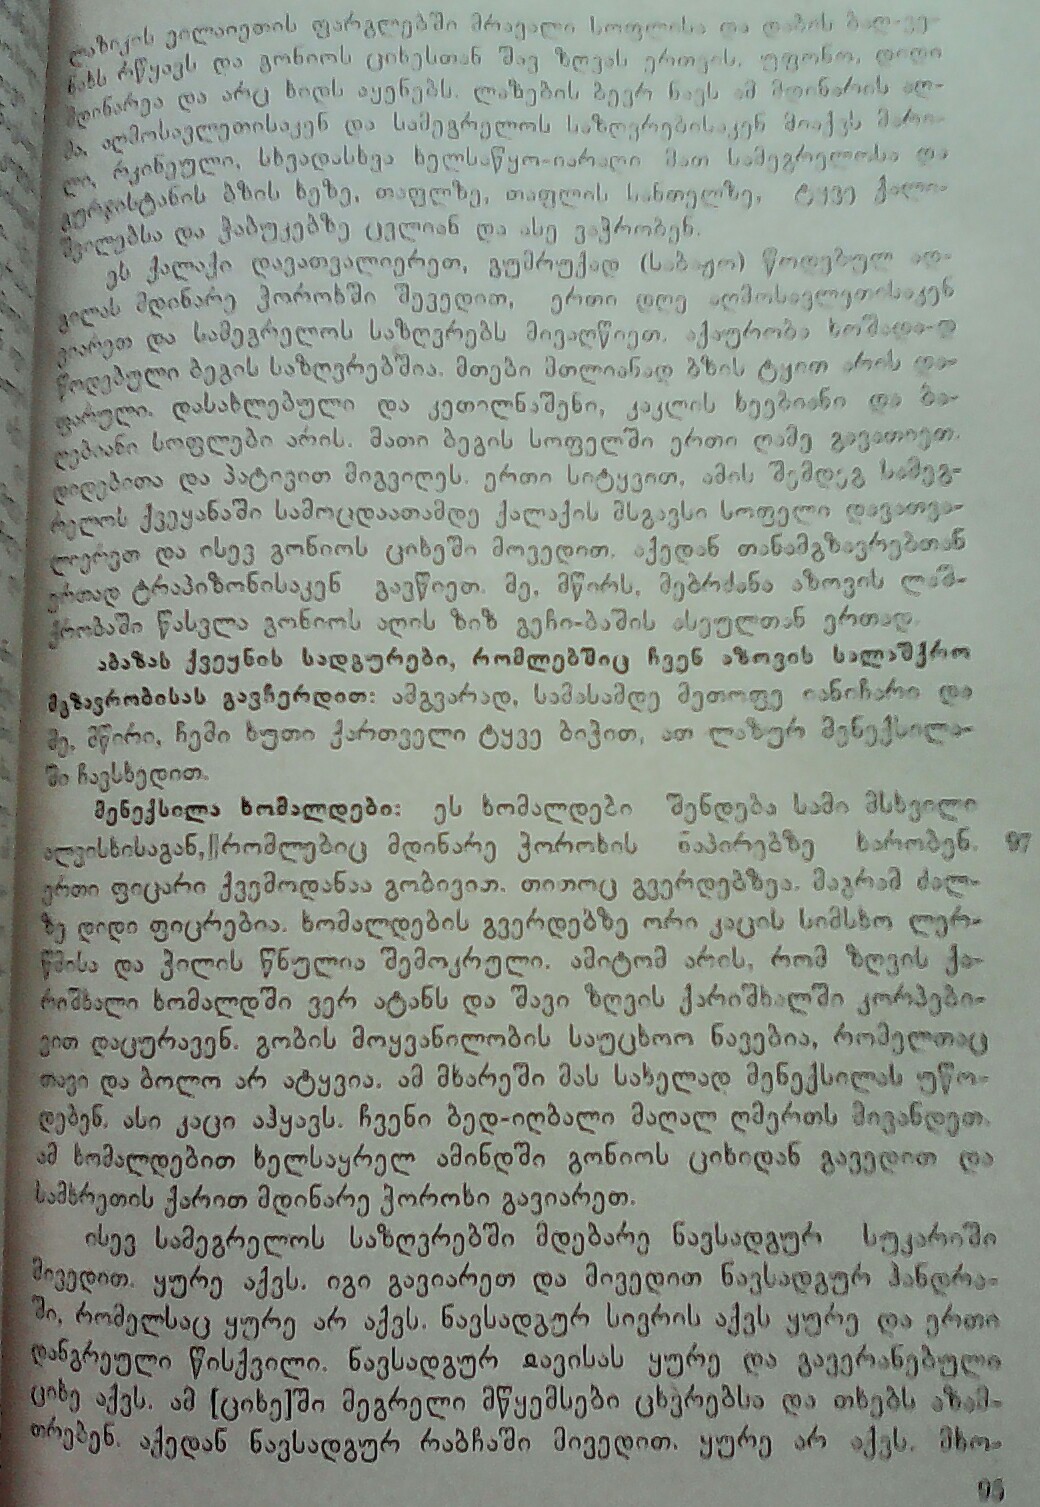 ლაზიკის ვილაიეთის ფარგლებში მრავალი სოფლისა და დაბის ბაღ-ვე-
ნახს რწყავს და გონიოს ციხესთან შავ ზღვას ერთვის. უფონო, დიდი
მდინარეა და არც ხიდს აყენებს. ლაზების ბევრ ნავს ამ მდინარის აღ-
მა, აღმოსავლეთისაკენ და სამეგრელოს საზღვრებისაკენ მიაქვს მარი-
ლი, რკინეული, სხვადასხვა ხელსაწყო-იარაღი მათ სამეგრელოსა და
გურჯისტანის ბზის ხეზე, თაფლზე, თაფლის სანთელზე, ტყვე ქალი-
შვილებსა და ჭაბუკებზე ცვლიან და ასე ვაჭრობენ.
ეს ქალაქი დავათვალიერეთ, გუმრუქად (საბაჟო) წოდებულ ად-
გილას მდინარე ჭოროხში შევედით, ერთი დღე აღმოსავლეთისაკენ
ვიარეთ და სამეგრელოს საზღვრებს მივაღწიეთ. აქაურობა
წოდებული ბეგის საზღვრებშია. მთები მთლიანად ბზის ტყით არის და-
ფარული. დასახლებული და კეთილნაშენი, კაკლის ხეებიანი და ბა-
ღებიანი სოფლები არის. მათი ბეგის სოფელში ერთი ღამე გავათიეთ.
დიდებითა და პატივით მიგვიღეს. ერთი სიტყვით, ამის შემდეგ სამეგ-
რელოს ქვეყანაში სამოცდაათამდე ქალაქის მსგავსი სოფელი დავათვა-
ლიერეთ და ისევ გონიოს ციხეში მოვედით. აქედან თანამგზავრებთან
ერთად ტრაპიზონისაკენ გავწიეთ. მე, მწირს, მებრძანა აზოვის ლაშ-
ქრობაში წასვლა გონიოს აღის ზიზ გეჩი-ბაშის ასეულთან ერთად.
აბაზას ქვეყნის სადგურები, რომლებშიც ჩვენ აზოვის სალაშქრო
მგზავრობისას გავჩერდით: ამგვარად, სამასამდე მეთოფე იანიჩარი და
მე, მწირი, ჩემი ხუთი ქართველი ტყვე ბიჭით, ათ ლაზურ მენექსილა-
ში ჩავსხედით.
მენექსილა ხომალდები: ეს ხომალდები შენდება სამი მსხვილი
ალვისხისაგან,||რომლებიც მდინარე ჭოროხის ნაპირებზე ხარობენ. 97
ერთი ფიცარი ქვემოდანაა გობივით. თითოც გვერდებზეა. მაგრამ ძალ-
ზე დიდი ფიცრებია. ხომალდების გვერდებზე ორი კაცის სიმსხო ლერ-
წმისა და ჭილის წნულია შემოკრული. ამიტომ არის, რომ ზღვის ქა-
რიშხალი ხომალდში ვერ ატანს და შავი ზღვის ქარიშხალში კორპები-
ვით დაცურავენ. გობის მოყვანილობის საუცხოო ნავებია, რომელთაც
თავი და ბოლო არ ატყვია. ამ მხარეში მას სახელად მენექსილას უწო-
დებენ. ასი კაცი აჰყავს. ჩვენი ბედ-იღბალი მაღალ ღმერთს მივანდეთ.
ამ ხომალდებით ხელსაყრელ ამინდში გონიოს ციხიდან გავედით და
სამხრეთის ქარით მდინარე ჭოროხი გავიარეთ.
ისევ სამეგრელოს საზღვრებში მდებარე ნავსადგურ სუკარიში
მივედით. ყურე აქვს. იგი გავიარეთ და მივედით ნავსადგურ ჰანდრა-
ში, რომელსაც ყურე არ აქვს. ნავსადგურ სივრის აქვს ყურე და ერთი
დანგრეული წისქვილი. ნავსადგურ ყურე და გავერანებული
ციხე აქვს. ამ [ციხე]ში მეგრელი მწყემსები ცხვრებსა და თხებს აზამ-
თრებენ. აქედან ნავსადგურ რაბჩაში მივედით. ყურე არ აქვს. მხო-